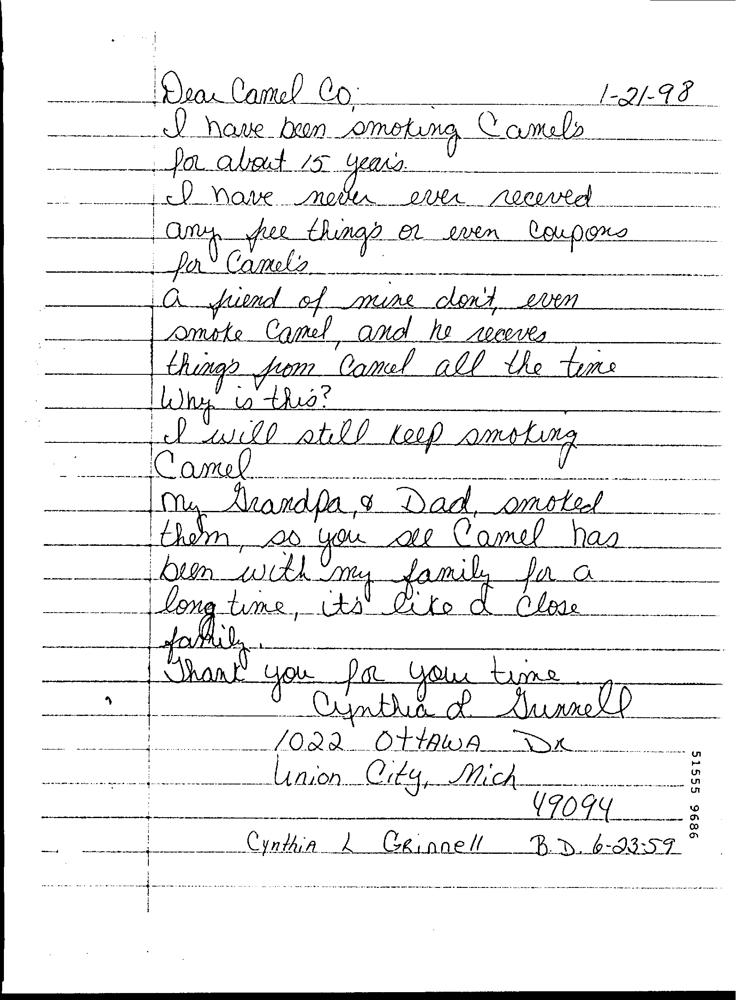 Dear Camel Co; 1-21-98
I have been smoking Camel's
for about 15 years.
I have never ever receved
any free thing's or even Coupons
for Camel's
a friend of mine don't, even
smoke Camel, and he receves
thing's from Camel all the time
Why is this?
I will still keep smoking
Camel
My Grandpa, & Dad, smoked
them, so you see Camel has
been with my family for a
long time, it's like a close
family.
Thank you for your time
Cynthia L Grinnell
1022 OttAWA Dr
Union City, Mich
49094
Cynthia L Grinnell B.D. 6-23-59
51555 9686